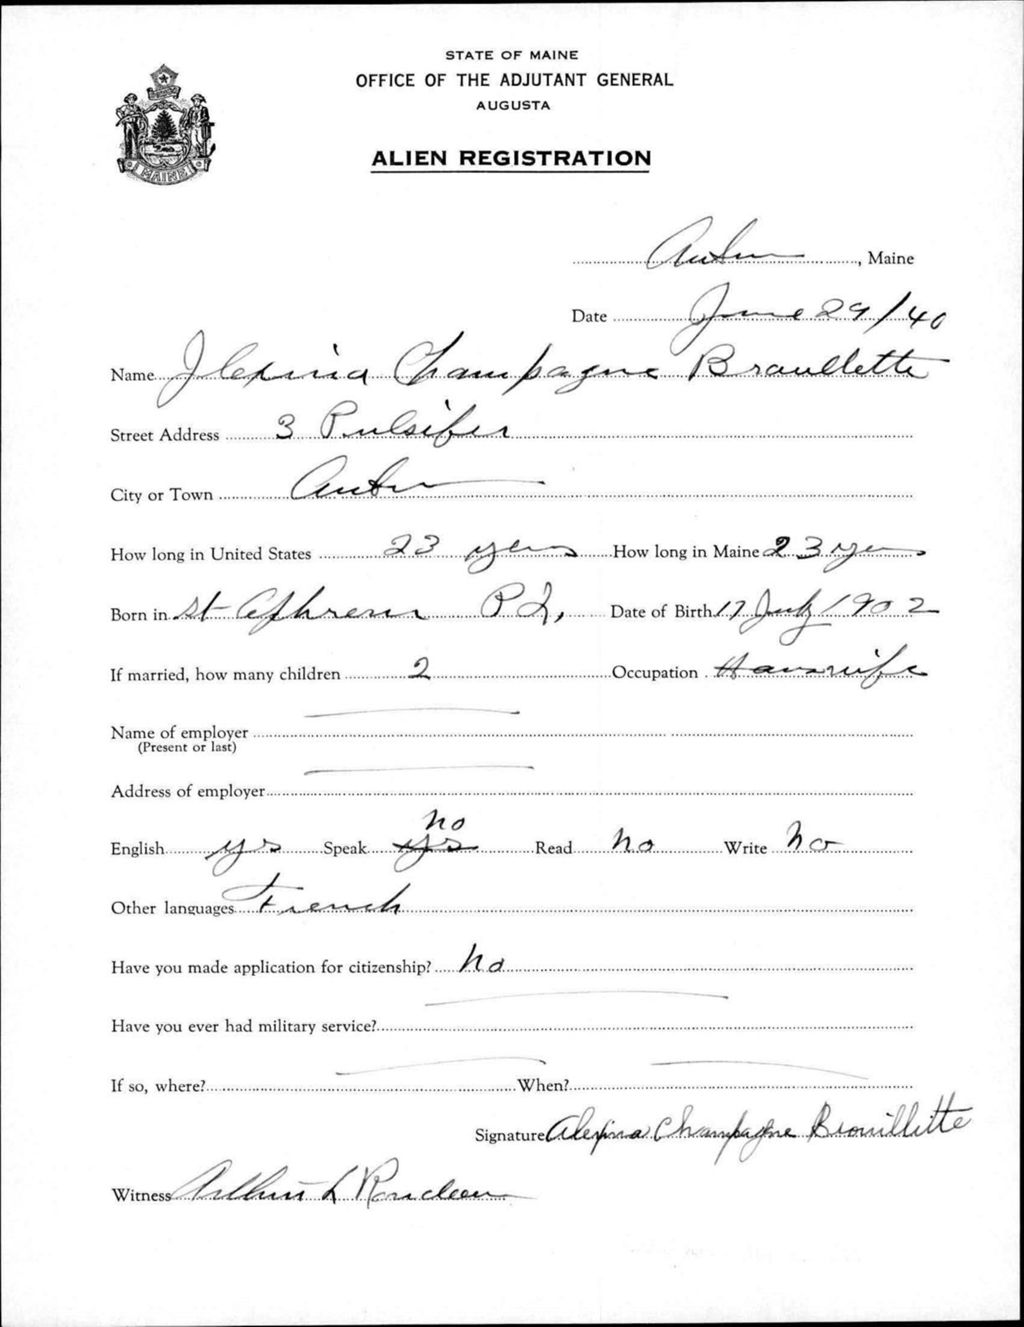 STATE OF MAINE
OFFICE OF THE ADJUTANT GENERAL
AUGUSTA
ALIEN REGISTRATION
MAINE
Auburn, Maine
Date June 29/40
Name Champagne Broullette
Street Address 3 Pulsifer
City or Town Auburn
How long in United States 23 years How long in Maine 23 years
Born in St Ephrem P Q, Date of Birth 17 July 1902
If married, how many children 2 Occupation Housewife
Name of employer
(Present or last)
Address of employer
English yes Speak yes no Read No Write No
Other languages French
Have you made application for citizenship? No
Have you ever had military service?
If so, where? When?
Signature Alexina Champagne Brouillette
Witness L